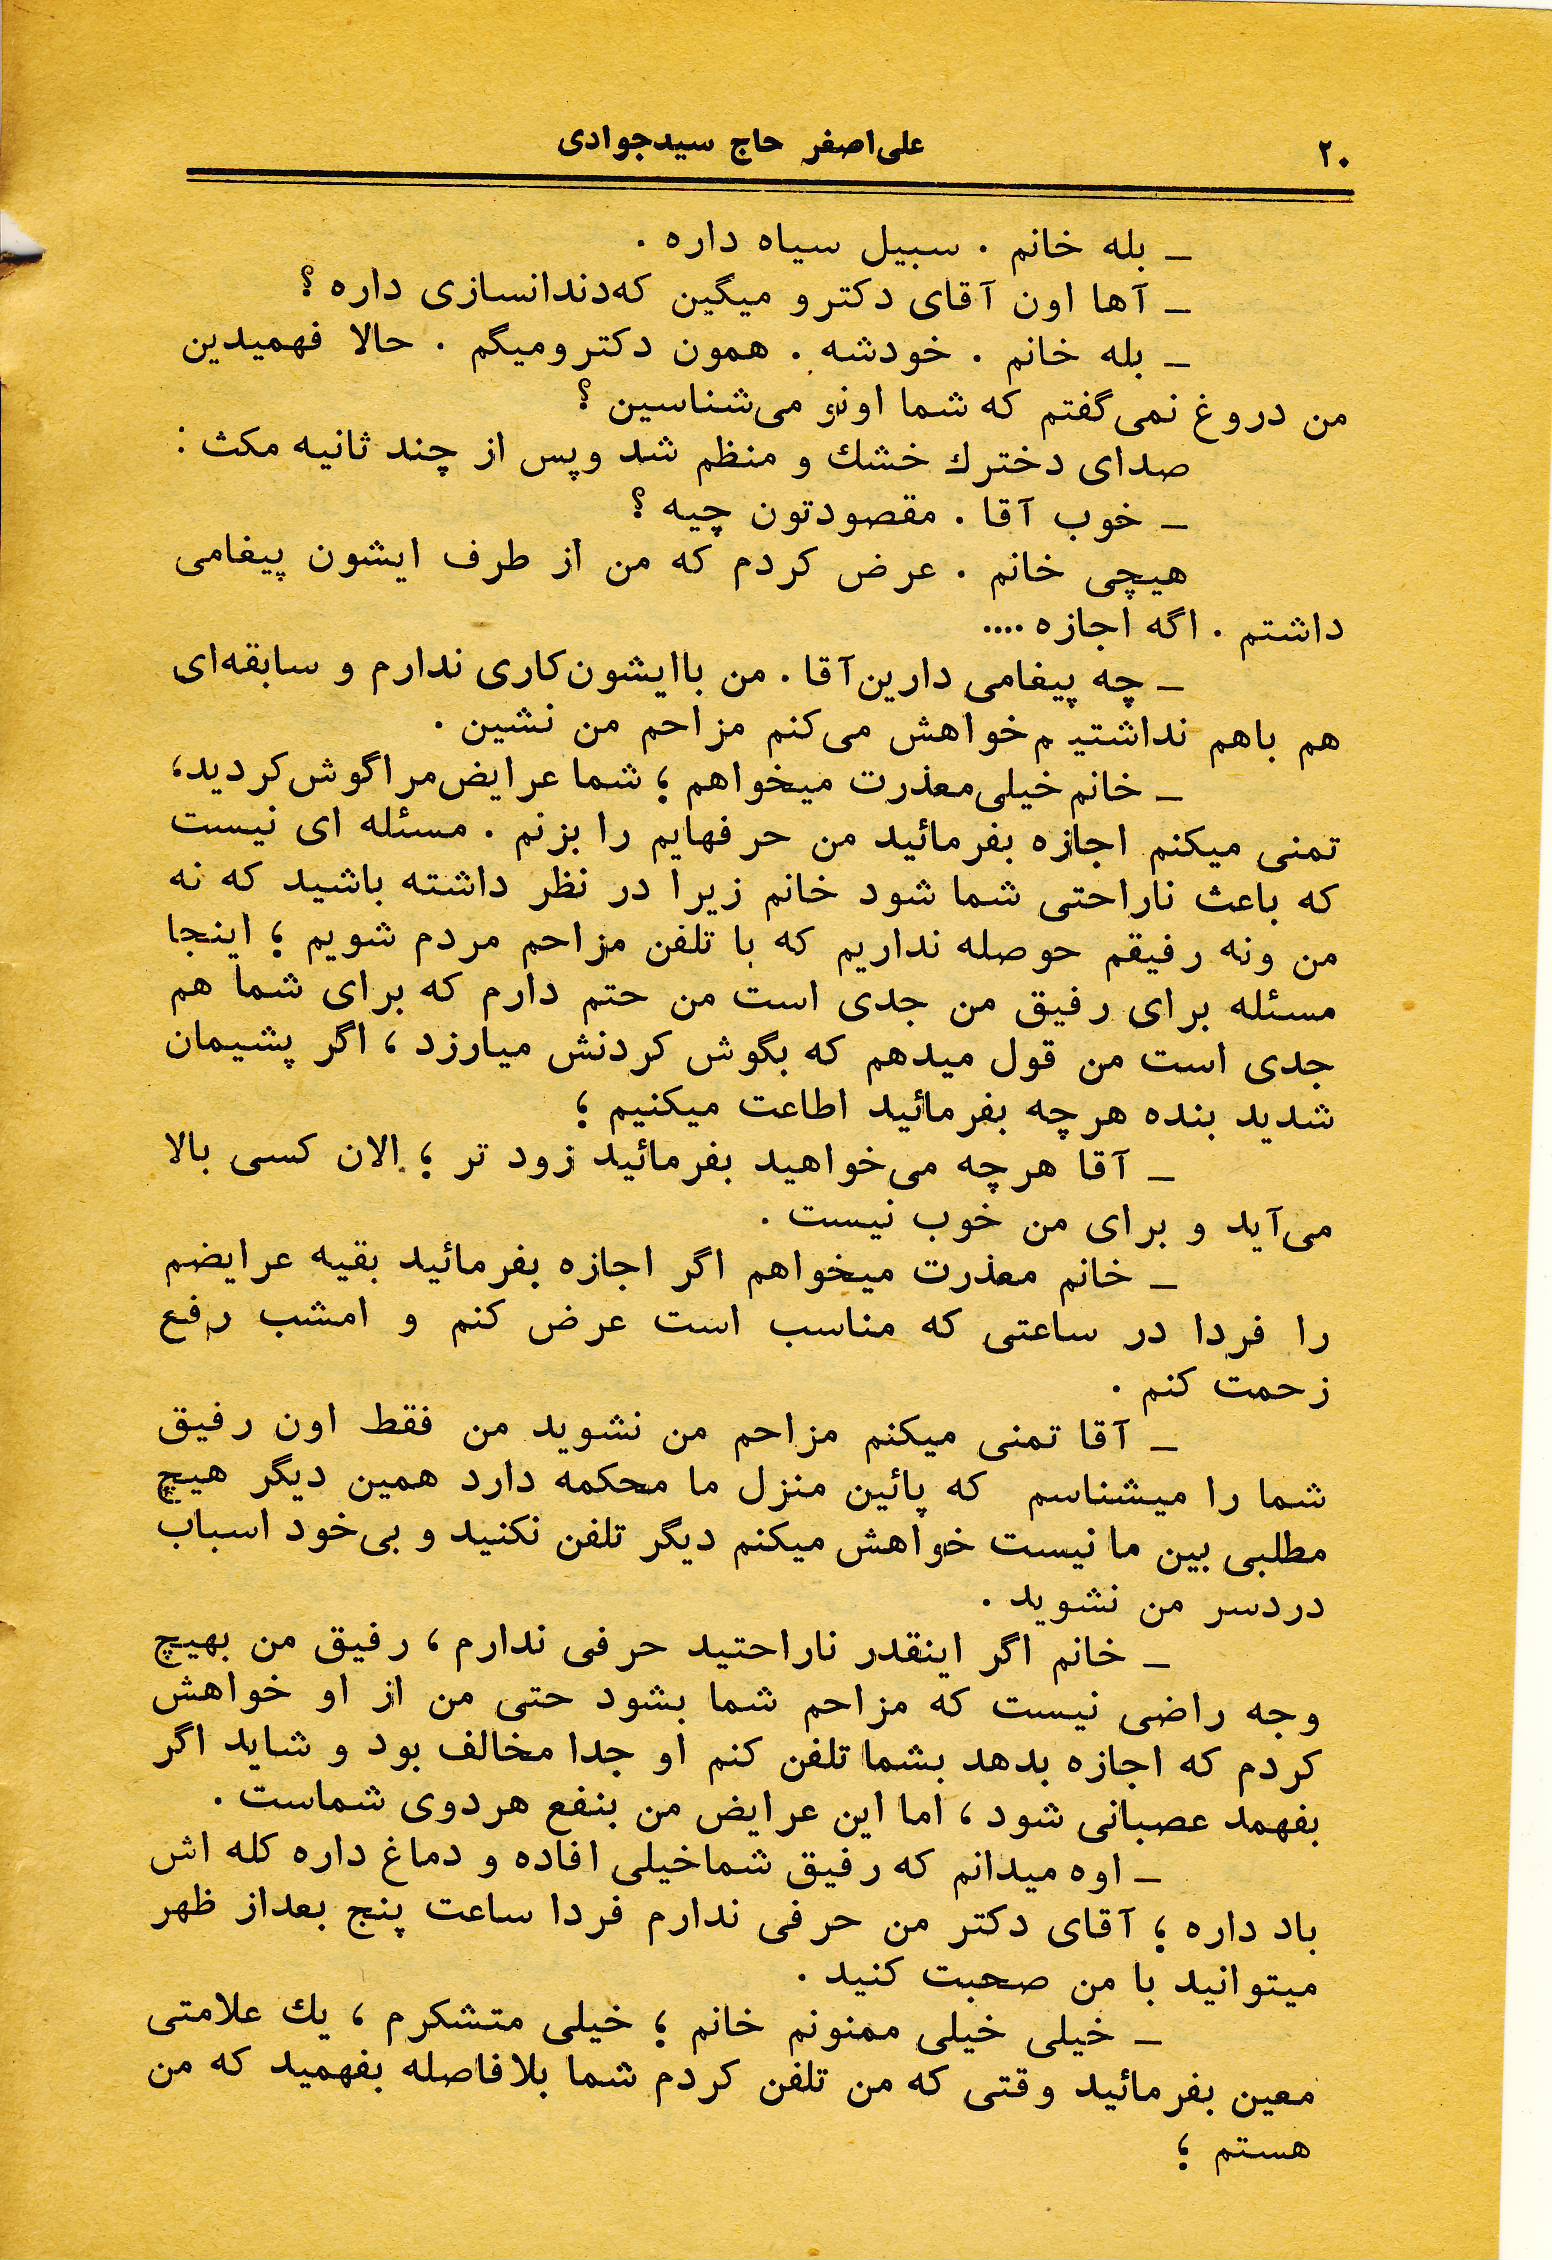 ۲۰
علی‌اصغر حاج سیدجوادی
ـ بله خانم . سبیل سیاه داره .
ـ آها اون آقای دکترو میگین که‌دندانسازی داره ؟
ـ بله خانم . خودشه . همون دکترومیگم . حالا فهمیدین
من دروغ نمی‌گفتم که شما اونو می‌شناسین ؟
صدای دخترك خشك و منظم شد وپس از چند ثانیه مکث :
ـ خوب آقا . مقصودتون چیه ؟
هیچی خانم . عرض کردم که من از طرف ایشون پیغامی
داشتم . اگه اجازه ....
ـ چه پیغامی دارین‌آقا . من باایشون‌کاری ندارم و سابقه‌ای
هم باهم نداشتیم‌خواهش می‌کنم مزاحم من نشین .
ـ خانم‌خیلی‌معذرت میخواهم ؛ شما عرایض‌مراگوش‌کردید،
تمنی میکنم اجازه بفرمائید من حرفهایم را بزنم . مسئله ای نیست
که باعث ناراحتی شما شود خانم زیرا در نظر داشته باشید که نه
من ونه رفیقم حوصله نداریم که با تلفن مزاحم مردم شویم ؛ اینجا
مسئله برای رفیق من جدی است من حتم دارم که برای شما هم
جدی است من قول میدهم که بگوش کردنش میارزد ، اگر پشیمان
شدید بنده هرچه بفرمائید اطاعت میکنیم ؛
ـ آقا هرچه می‌خواهید بفرمائید زود تر ؛ الان کسی بالا
می‌آید و برای من خوب نیست .
ـ خانم معذرت میخواهم اگر اجازه بفرمائید بقیه عرایضم
را فردا در ساعتی که مناسب است عرض کنم و امشب رفع
زحمت کنم .
ـ آقا تمنی میکنم مزاحم من نشوید من فقط اون رفیق
شما را میشناسم که پائین منزل ما محکمه دارد همین دیگر هیچ
مطلبی بین ما نیست خواهش میکنم دیگر تلفن نکنید و بی‌خود اسباب
دردسر من نشوید .
ـ خانم اگر اینقدر ناراحتید حرفی ندارم ، رفیق من بهیچ
وجه راضی نیست که مزاحم شما بشود حتی من از او خواهش
کردم که اجازه بدهد بشما تلفن کنم او جدا مخالف بود و شاید اگر
بفهمد عصبانی شود ، اما این عرایض من بنفع هردوی شماست .
ـ اوه میدانم که رفیق شماخیلی افاده و دماغ داره کله اش
باد داره ؛ آقای دکتر من حرفی ندارم فردا ساعت پنج بعداز ظهر
میتوانید با من صحبت کنید .
ـ خیلی خیلی ممنونم خانم ؛ خیلی متشکرم ، یك علامتی
معین بفرمائید وقتی که من تلفن کردم شما بلافاصله بفهمید که من
هستم ؛